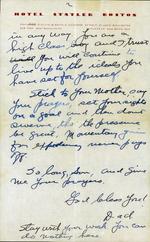 2
HOTEL STATLER BOSTON
in any way. You are a
high class boy and I trust
you will continue to
live up to the ideals you
have set for yourself
Stick to your Mother, say
your prayers, set your sights
on a goal and then shoot
the pressure
be great. Momentary
for never pays
off.
So long, Son, and give
me your prayers.
God bless you!
Dad
Stay with your work. You can
do nothing